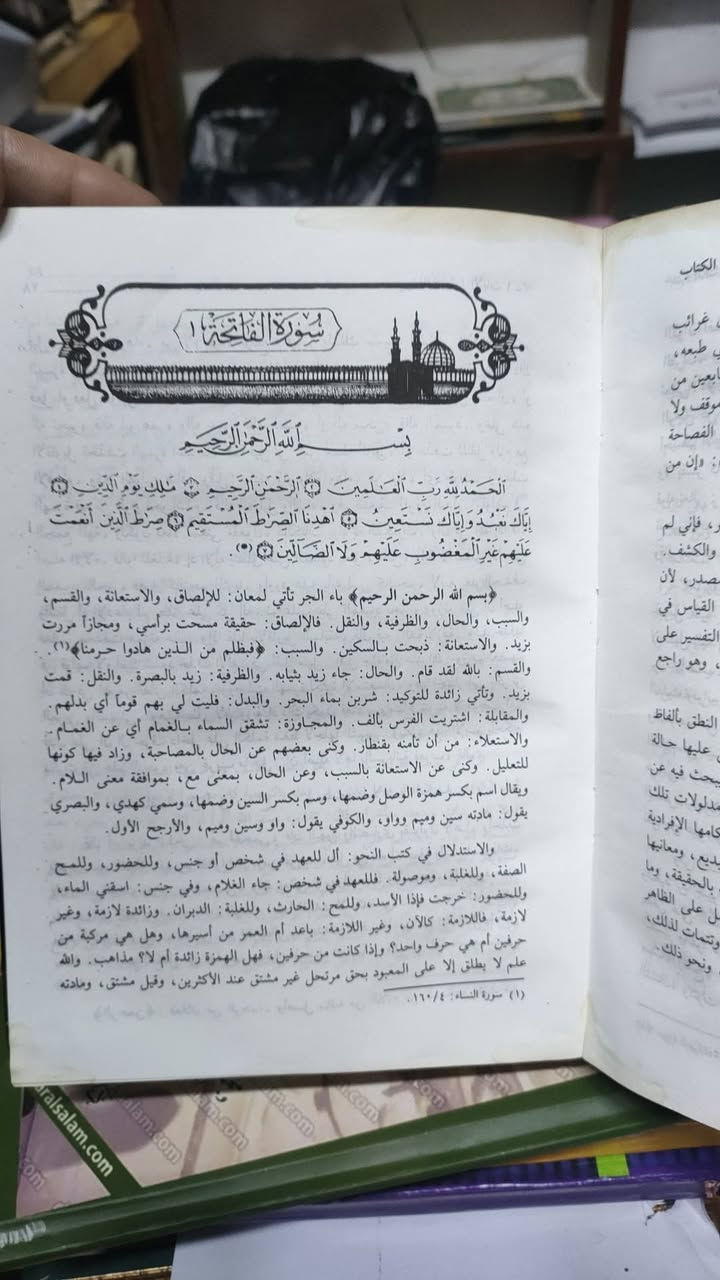 سورة الفاتحة ١
بسم الله الرحمن الرحيم
الْحَمْدُ لِلَّهِ رَبِّ الْعَٰلَمِينَ ۝ الرَّحْمَٰنِ الرَّحِيمِ ۝ مَٰلِكِ يَوْمِ الدِّينِ ۝
إِيَّاكَ نَعْبُدُ وَإِيَّاكَ نَسْتَعِينُ ۝ اهْدِنَا الصِّرَٰطَ الْمُسْتَقِيمَ ۝ صِرَٰطَ الَّذِينَ أَنْعَمْتَ
عَلَيْهِمْ غَيْرِ الْمَغْضُوبِ عَلَيْهِمْ وَلَا الضَّالِّينَ ۝
﴿بسم الله الرحمن الرحيم﴾ باء الجر تأتي لمعان: للإلصاق، والاستعانة، والقسم،
والسبب، والحال، والظرفية، والنقل. فالإلصاق: حقيقة مسحت برأسي، ومجازاً مررت
بزيد. والاستعانة: ذبحت بـالسكين. والسبب: ﴿فبظلم من الـذين هادوا حـرمنا﴾(١).
والقسم: بالله لقد قام. والحال: جاء زيد بثيابه. والظرفية: زيد بالبصرة. والنقل: قمت
بزيد. وتأتي زائدة للتوكيد: شربن بماء البحر. والبدل: فليت لي بهم قوماً أي بدلهم.
والمقابلة: اشتريت الفرس بألف. والمجـاوزة: تشقق السماء بـالغمام أي عن الغمـام.
والاستعلاء: من أن تأمنه بقنطار. وكنى بعضهم عن الحال بالمصاحبة، وزاد فيها كونها
للتعليل. وكنى عن الاستعانة بالسبب، وعن الحال، بمعنى مع، بمـوافقة معنى الـلام.
ويقال اسم بكسر همزة الوصل وضمها، وسم بكسر السين وضمها، وسمي كهدي، والبصري
يقول: مادته سين وميم وواو، والكوفي يقول: واو وسين وميم، والأرجح الأول.
والاستدلال في كتب النحو: أل للعهد في شخص أو جنس، وللحضور، وللمـح
الصفة، وللغلبة، وموصولة. فللعهد في شخص: جاء الغلام، وفي جنس: اسقني الماء،
وللحضور: خرجت فإذا الأسد، وللمح: الحارث، وللغلبة: الدبران. وزائدة لازمة، وغير
لازمة، فاللازمة: كالآن، وغير اللازمة: باعد أم العمر من أسيرها، وهل هي مركبة من
حرفين أم هي حرف واحد؟ وإذا كانت من حرفين، فهل الهمزة زائدة أم لا؟ مذاهب. والله
علم لا يطلق إلا على المعبود بحق مرتجل غير مشتق عند الأكثرين، وقيل مشتق، ومادته
(١) سورة النساء: ٤/ ١٦٠.
الكتاب
غرائب
طبعه،
من
موقف ولا
الفصاحة
«إن من
فإني لم
والكشف.
لأن
القياس في
التفسير على
وهو راجع
النطق بألفاظ
عليها حالة
فيه عن
مدلولات تلك
الإفرادية
ومعانيها
بالحقيقة، وما
على الظاهر
وتتمات لذلك،
ونحو ذلك.